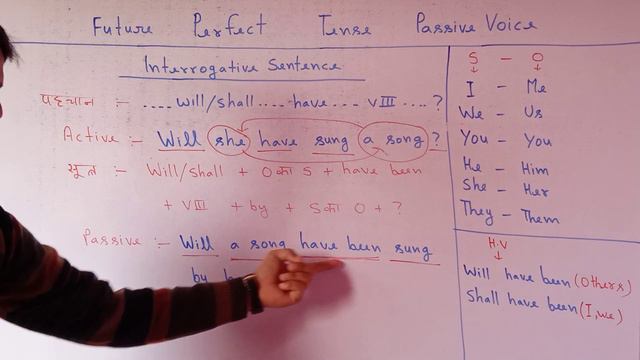 Future Perfect Tense Passive Voice
Interrogative Sentence
पहचान :- .... will/shall .... have ... VIII .... ?
Active :- Will she have sung a song ?
सूत्र :- Will/shall + O का S + have been
+ VIII + by + S का O + ?
Passive :- Will a song have been sung
by
S - O
I - Me
We - Us
You - You
He - Him
She - Her
They - Them
H.V
Will have been (Others)
Shall have been (I, we)